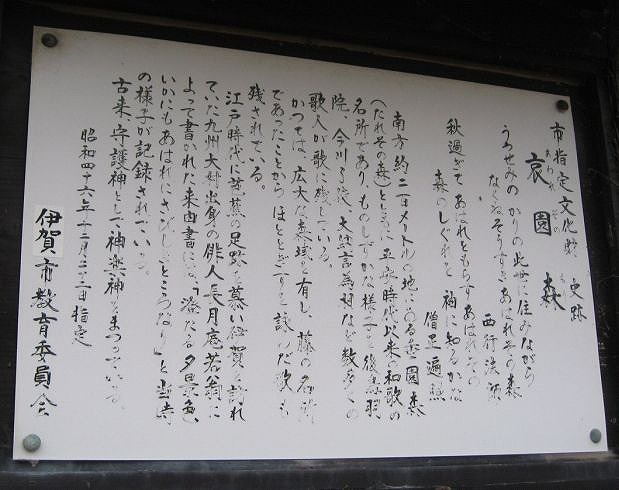 市指定文化財 史跡
哀園森
あわれ その もり
うつせみの かりの此世に住みながら
なくねそうすきあはれその森
西行法師
秋過ぎてあはれともらすあはれその
森のしぐれを 袖に知るかな
僧正遍照
南方約二百メートルの地にある哀園森
(たれその森)ともに、平安時代以来の和歌の
名所であり、ものしずかな様子を後鳥羽
院、今川了俊、大納言為村など数多くの
歌人が歌に残している。
かつては、広大な森域を有し、藤の名所
であったことからほととぎすを詠んだ歌も
残されている。
江戸時代に芭蕉の足跡を慕い伊賀を訪れ
ていた九州大村出身の俳人長月庵若翁に
よって書かれた来由書には「澄たる夕景色、
いかにもあはれにさびしきところなり」と当時
の様子が記録されている。
古来、守護神として神楽神をまつっている。
昭和四十六年十二月二二日指定
伊賀市教育委員会